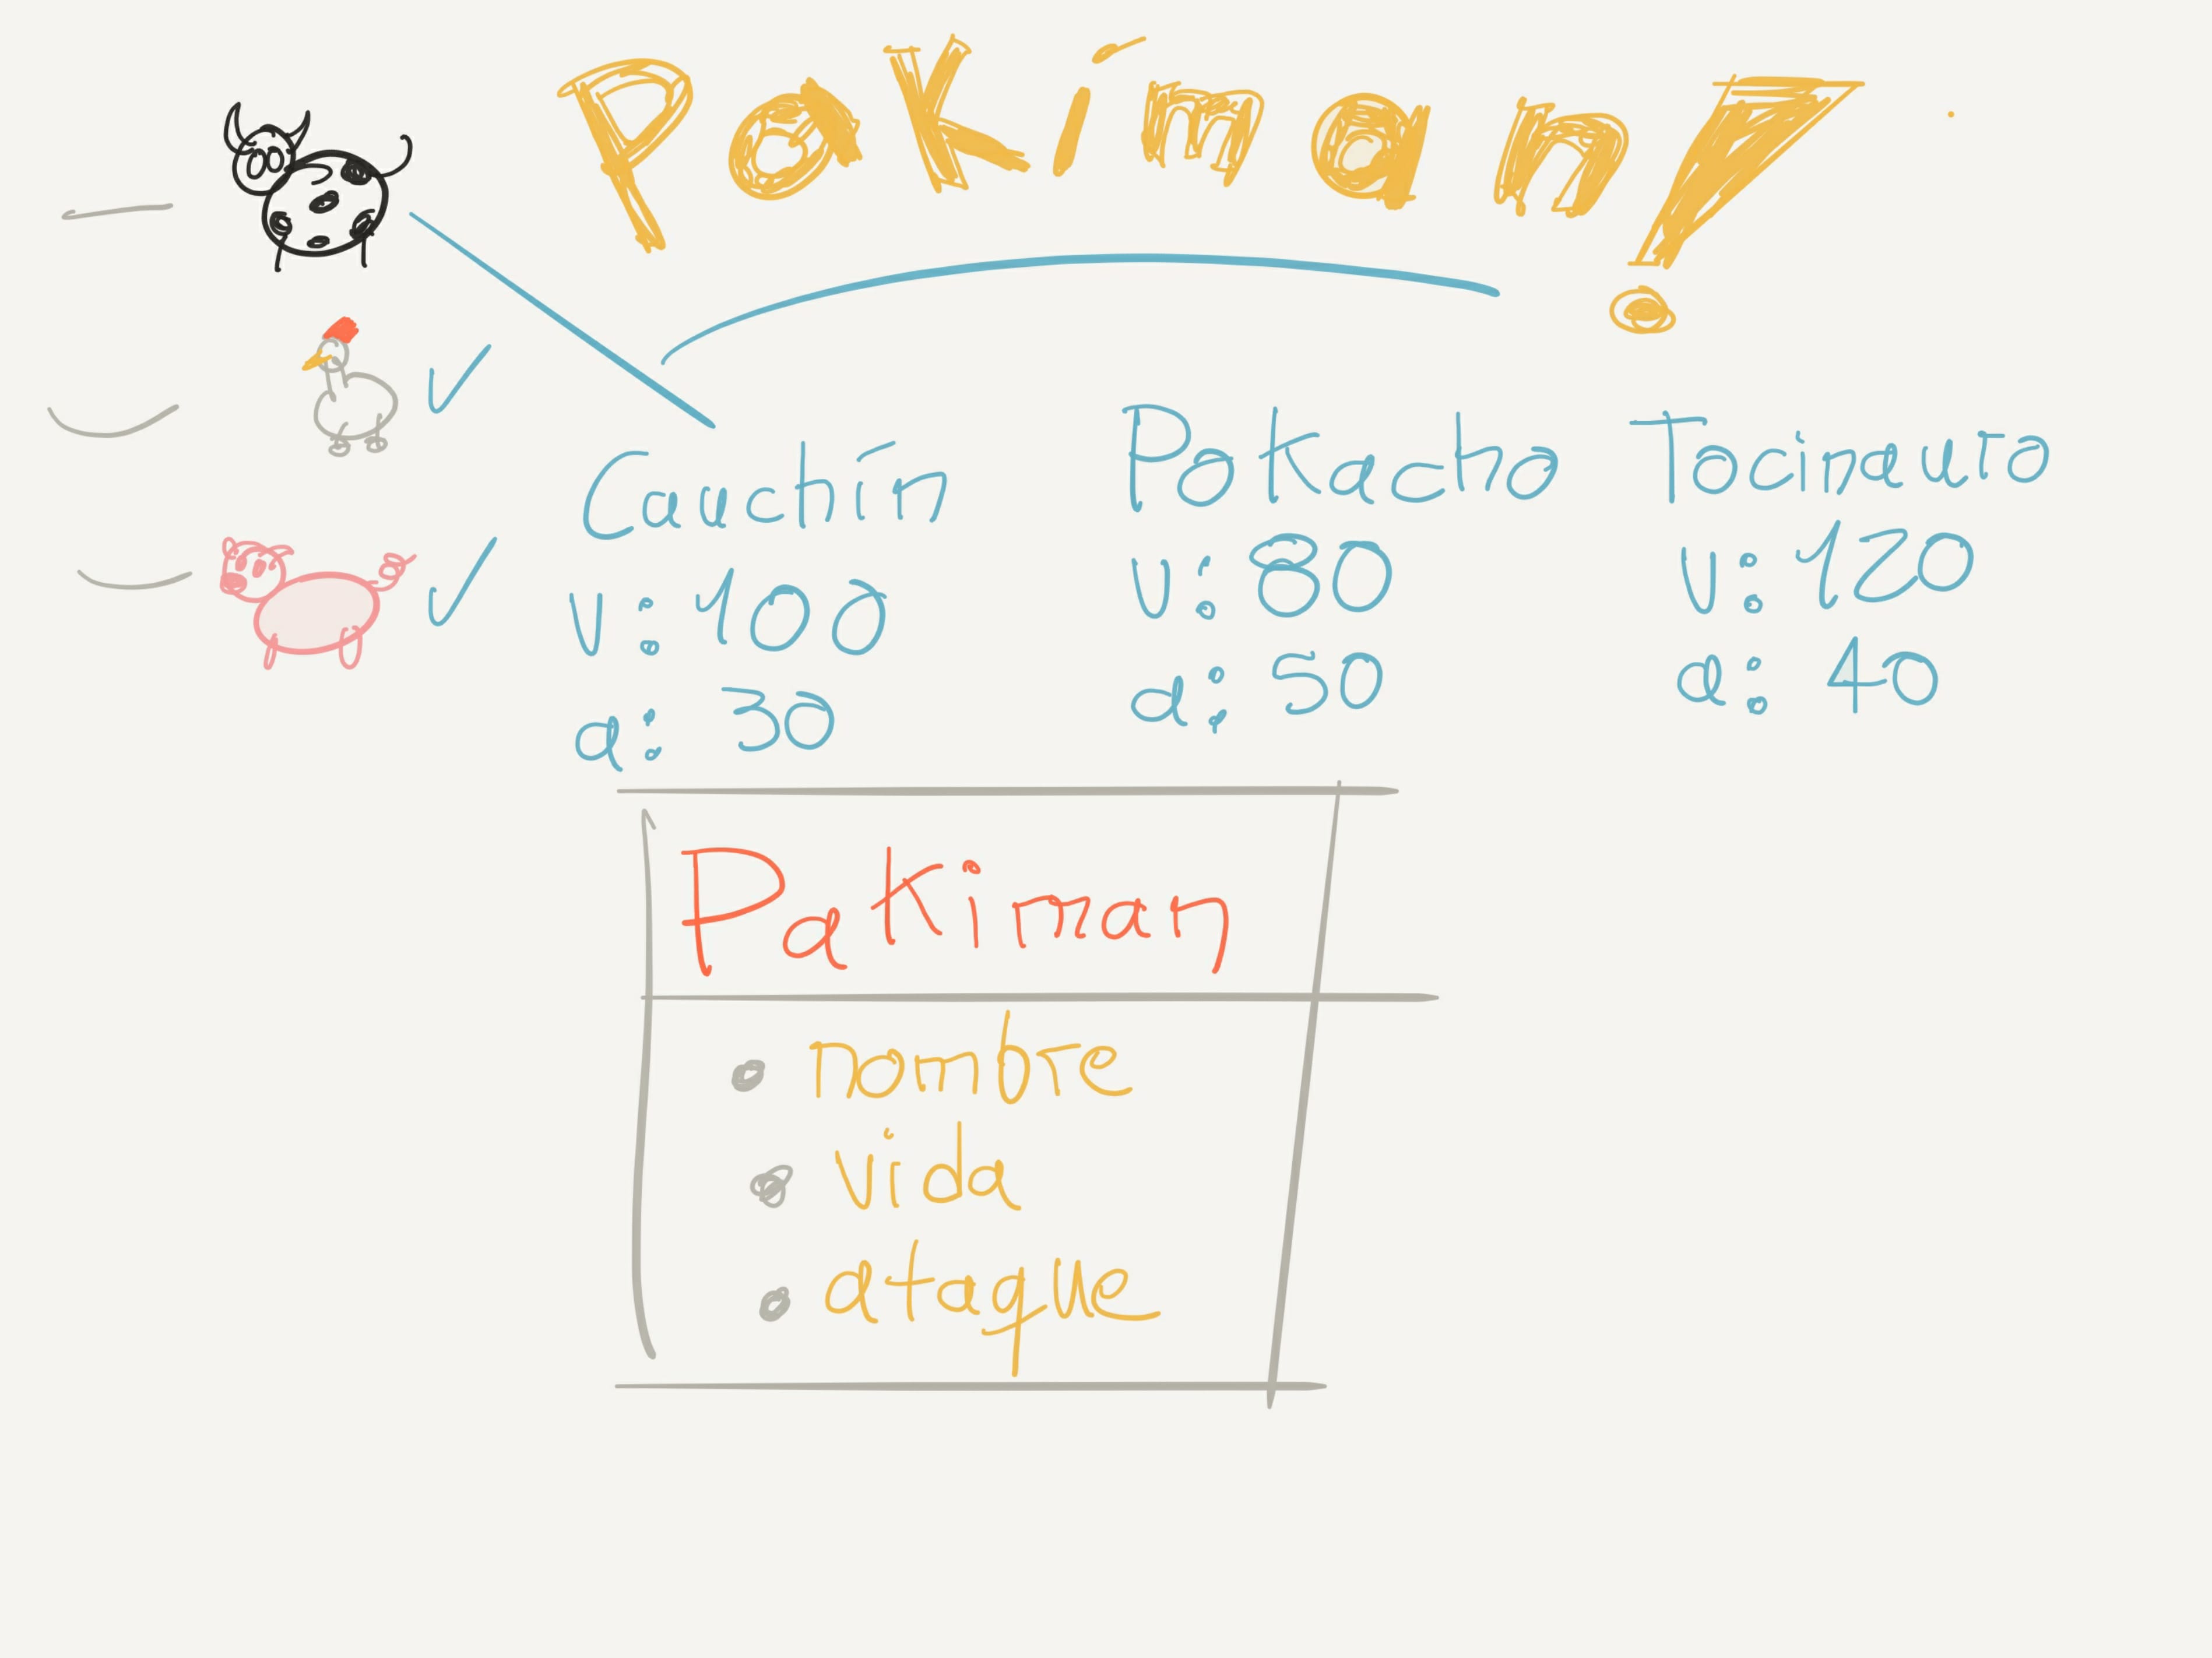 Pakíman!
Cauchín
v: 100
a: 30
Pokacho
v: 80
a: 50
Tocinauro
v: 120
a: 40
Pakiman
nombre
vida
ataque